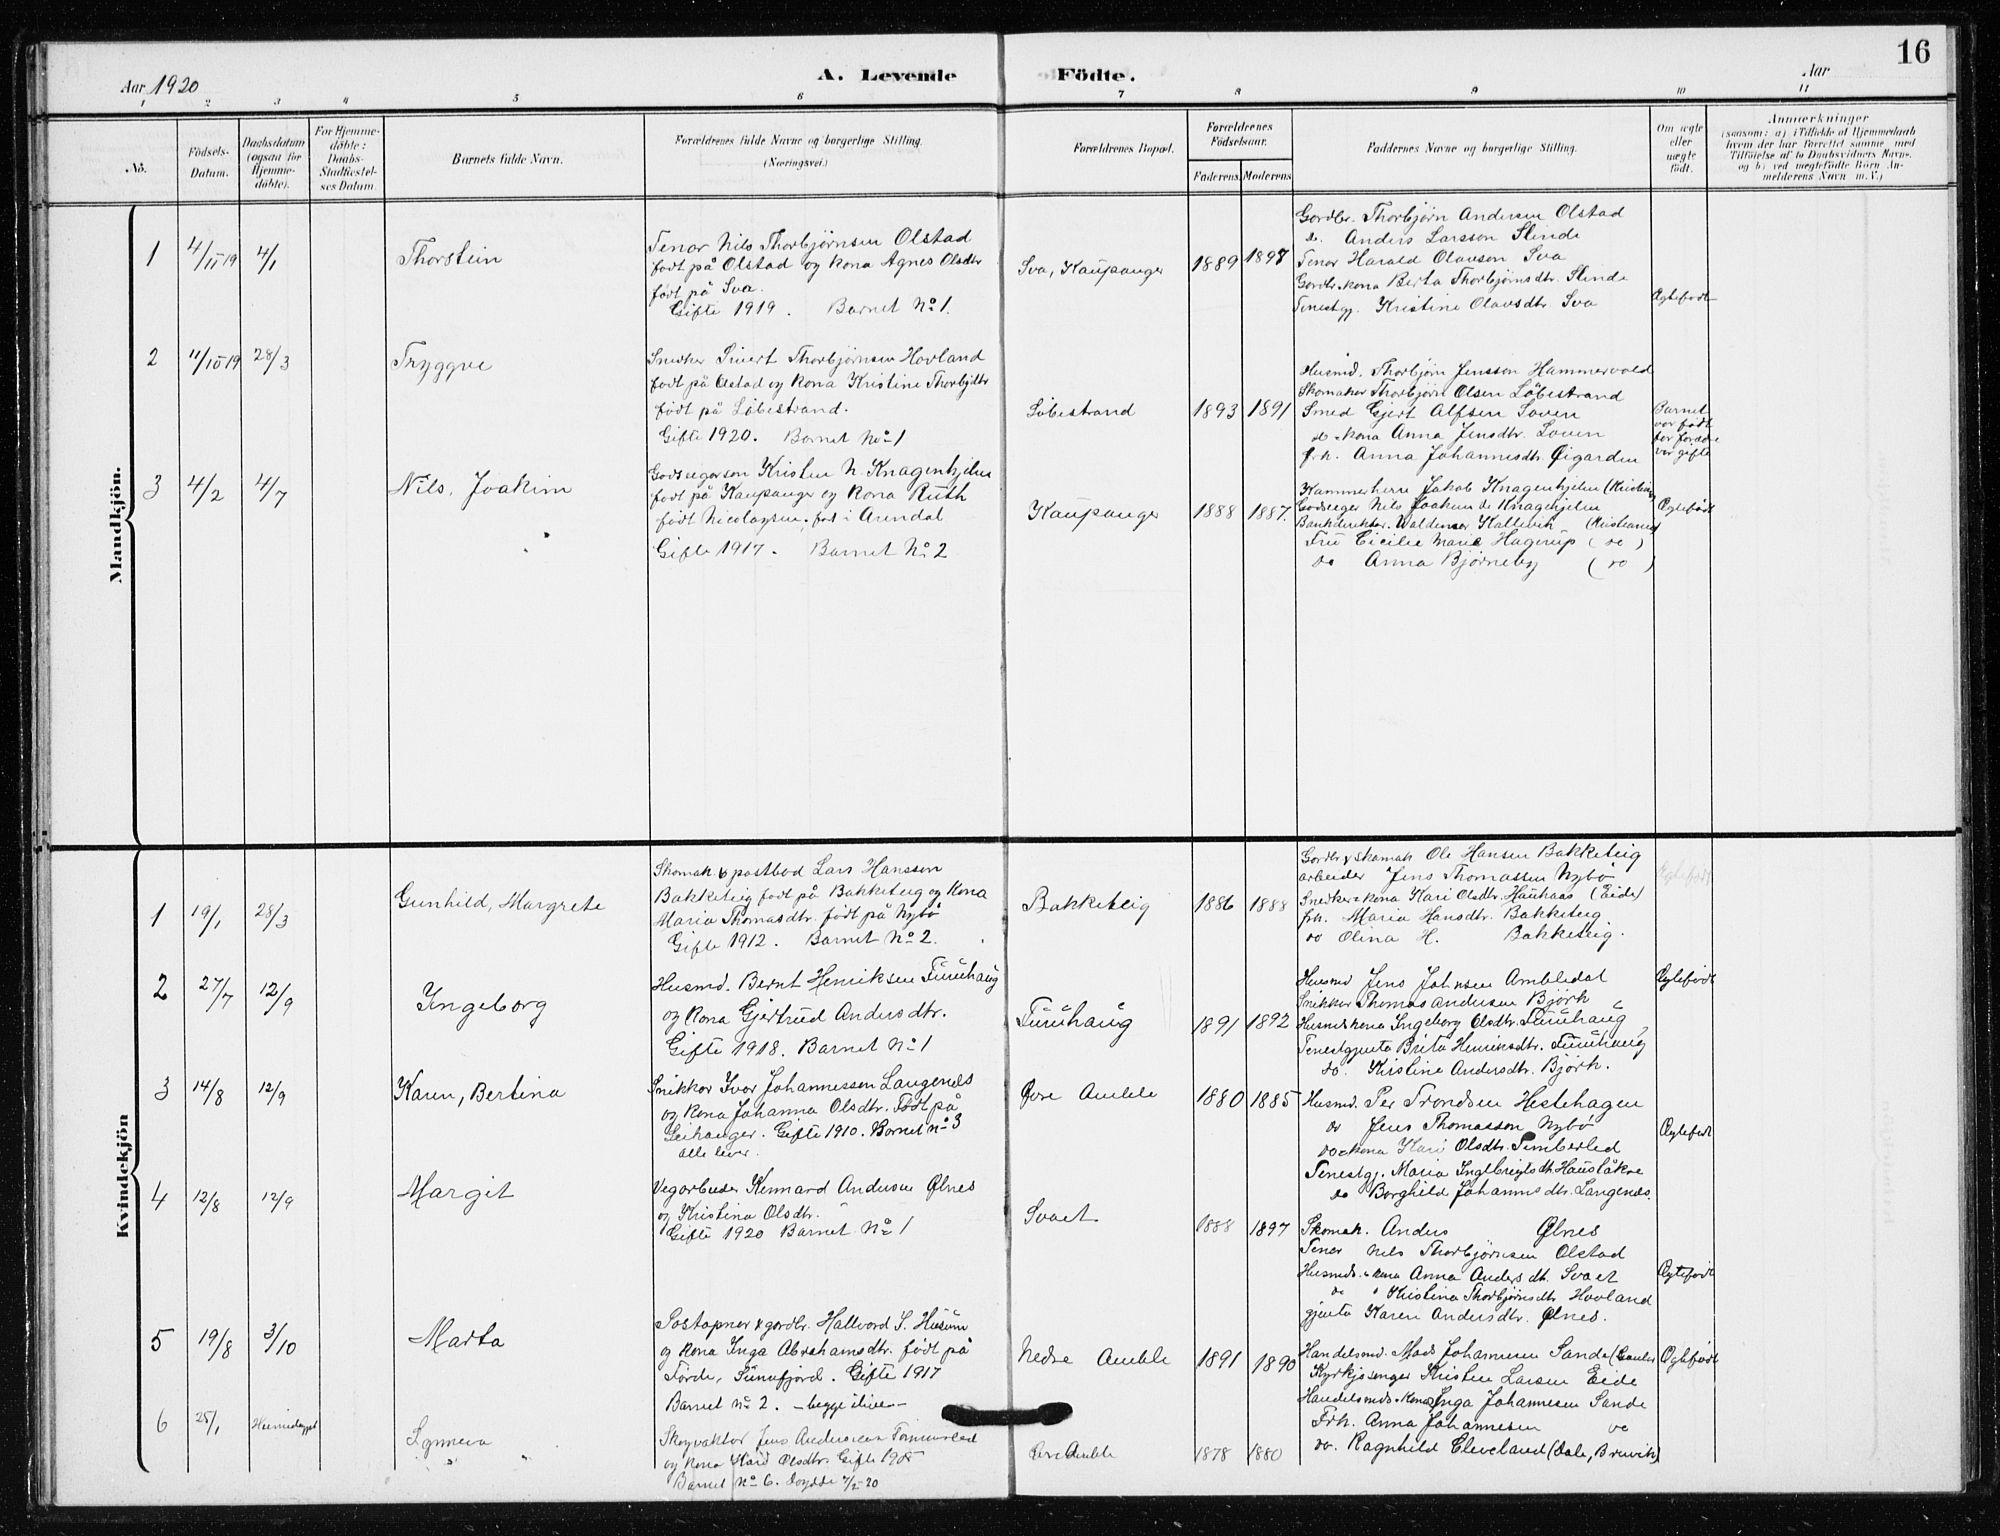 16
Aar 1920
A. Levende
Födte.
Aar
1 2 3 4 5 6 7 8 9 10 11
No.
Födsels-
Datum.
Daabsdatum
(ogsaa for
Hjemme-
döbte).
For Hjemme-
döbte:
Daabs-
Stadfæstel-
ses Datum.
Barnets fulde Navn.
Forældrenes fulde Navne og borgerlige Stilling.
(Næringsvei.)
Forældrenes Bopæl.
Forældrenes
Födselsaar.
Faderens.
Moderens
Faddernes Navne og borgerlige Stilling.
Om ægte
eller
uægte
födt.
Anmærkninger
(saasom: a) i Tilfælde af Hjemmedaab
hvem der har forrettet samme med
Tilföielse af to Daabsvidners Navne,
og b) ved uægtefödte Börn An-
melderens Navn m. V.)
Mandkjön.
1 4/11-19 4/1 Thorstein
Tenar Nils Thorbjørnsen Olstad
født på Olstad og kona Agnes Olsdtr
født på Sva.
Gifte 1919. Barnet No 1.
Sva, Kaupanger 1889 1897
Gardbr. Thorbjørn Andersen Olstad
do. Anders Larsson Slinde
Tenar Harald Olavson Sva
Gardbr. kona Berta Thorbjørnsdtr. Slinde
Tenestgj. Kristine Olavsdtr. Sva
Ægtefødt
2 11/10-19 28/3 Tryggve
Snedker Sivert Thorbjørnsen Hovland
født på Olstad og kona Kristine Thorbjdtr
født på Løbestrand.
Gifte 1920. Barnet No 1
Løbestrand 1893 1891
Husmd. Thorbjørn Jensson Hammervold
Skomaker Thorbjørn Olsen Løbestrand
Smed Gjert Alfsen Loven
do - kona Anna Jensdtr. Loven
frk. Anna Johannesdtr. Øigarden
Barnet
var født
før foreldre
var gifte
3 4/2 4/7 Nils, Joakim
Godseigarson Kristen N. Knagenhjelm
født på Kaupanger og kona Ruth
født Nicolaysen, fød i Arendal
Gifte 1917. Barnet No 2
Kaupanger 1888 1887.
Kammerherre Jakob Knagenhjelm
Godseiger Nils Joakim de Knagenhjelm
Bankdirektør. Waldemar Kallevik
Fru Cicilie Marie Hagerup (do)
do Anna Bjørneby (do)
Ægtefødt
Kvindekjön
1 19/1 28/3 Gunhild, Margrete
Skomak & postbod Lars Hansson
Bakketeig født på Bakketeig og kona
Maria Thomasdtr. født på Nybø
Gifte 1912. Barnet No 2.
Bakketeig 1886 1888
Gardbr & skomak Ole Hansen Bakketeig
arbeider Jens Thomassen Nybø
Snedker - kona Kari Olsdtr. Hauhaas (Eide)
frk. Maria Hansdtr. Bakketeig
do Olina H. Bakketeig.
Ægtefødt
2 27/7 12/9 Ingeborg
Husmd. Bernt Henriksen Furuhaug
og kona Gjertrud Andersdtr.
Gifte 1918. Barnet No 1
Furuhaug 1891 1892
Husmd Jens Johnsen Ambledal
Snikkar Thomas Andersen Björk
Husmdskona Ingeborg Olsdtr. Furuhaug
Tenestgjenta Brita Henriksdtr. Furuhaug
do. Kristine Andersdtr. Björk.
Ægtefødt
3 14/8 12/9 Karen, Bertina
Snikkar Ivar Johannessen Langenes
og kona Johanna Olsdtr. Født på
Leikanger. Gifte 1910. Barnet No 3
alle lever.
Øvre Amble 1880 1885
Husmd. Per Trondsen Hestehagen
do Jens Thomasson Nybø
do - kona Kari Olsdtr. Timberlid
Tenestgj. Maria Ingebrigtsdtr. Hauslåkre
do Borghild Johannesdtr. Langenes.
Ægtefødt
4 12/8 12/9 Margit
Vegarbeider Kennard Andersen Ølnes
og Kristina Olsdtr.
Gifte 1920 Barnet No 1
Svaet 1888 1897
Skomak. Anders Ølnes
Tenar Nils Thorbjørnsen Olstad
Husmds. - kona Anna Andersdtr. Svaet
do " Kristina Thorbjørnsdtr Hovland
gjenta Karen Andersdtr. Ølnes.
Ægtefødt
5 19/8 3/10 Marta
Postopnar & gardbr. Hallvard S. Husum
og kona Inga Abrahamsdtr. født på
Førde, Sunnfjord. Gifte 1917
Barnet No 2. - begge i live -
Nedre Amble 1891 1890
Handelsmd. Mads Johannesen Sande
Kyrkjesongar Kristen Larsen Eide
Handelsmds - kona Inga Johannesen Sande
Frk. Anna Johannesen do
do. Ragnhild Cleveland (Dale, Bruvik)
Ægtefødt
6 25/1 Heimedøypt Synneva
Skogvaktar Jens Andersson
og kona Kari Olsdtr. Gifte
Barnet No 6. Døydde 7/2-20
Øvre Amble 1878 1880